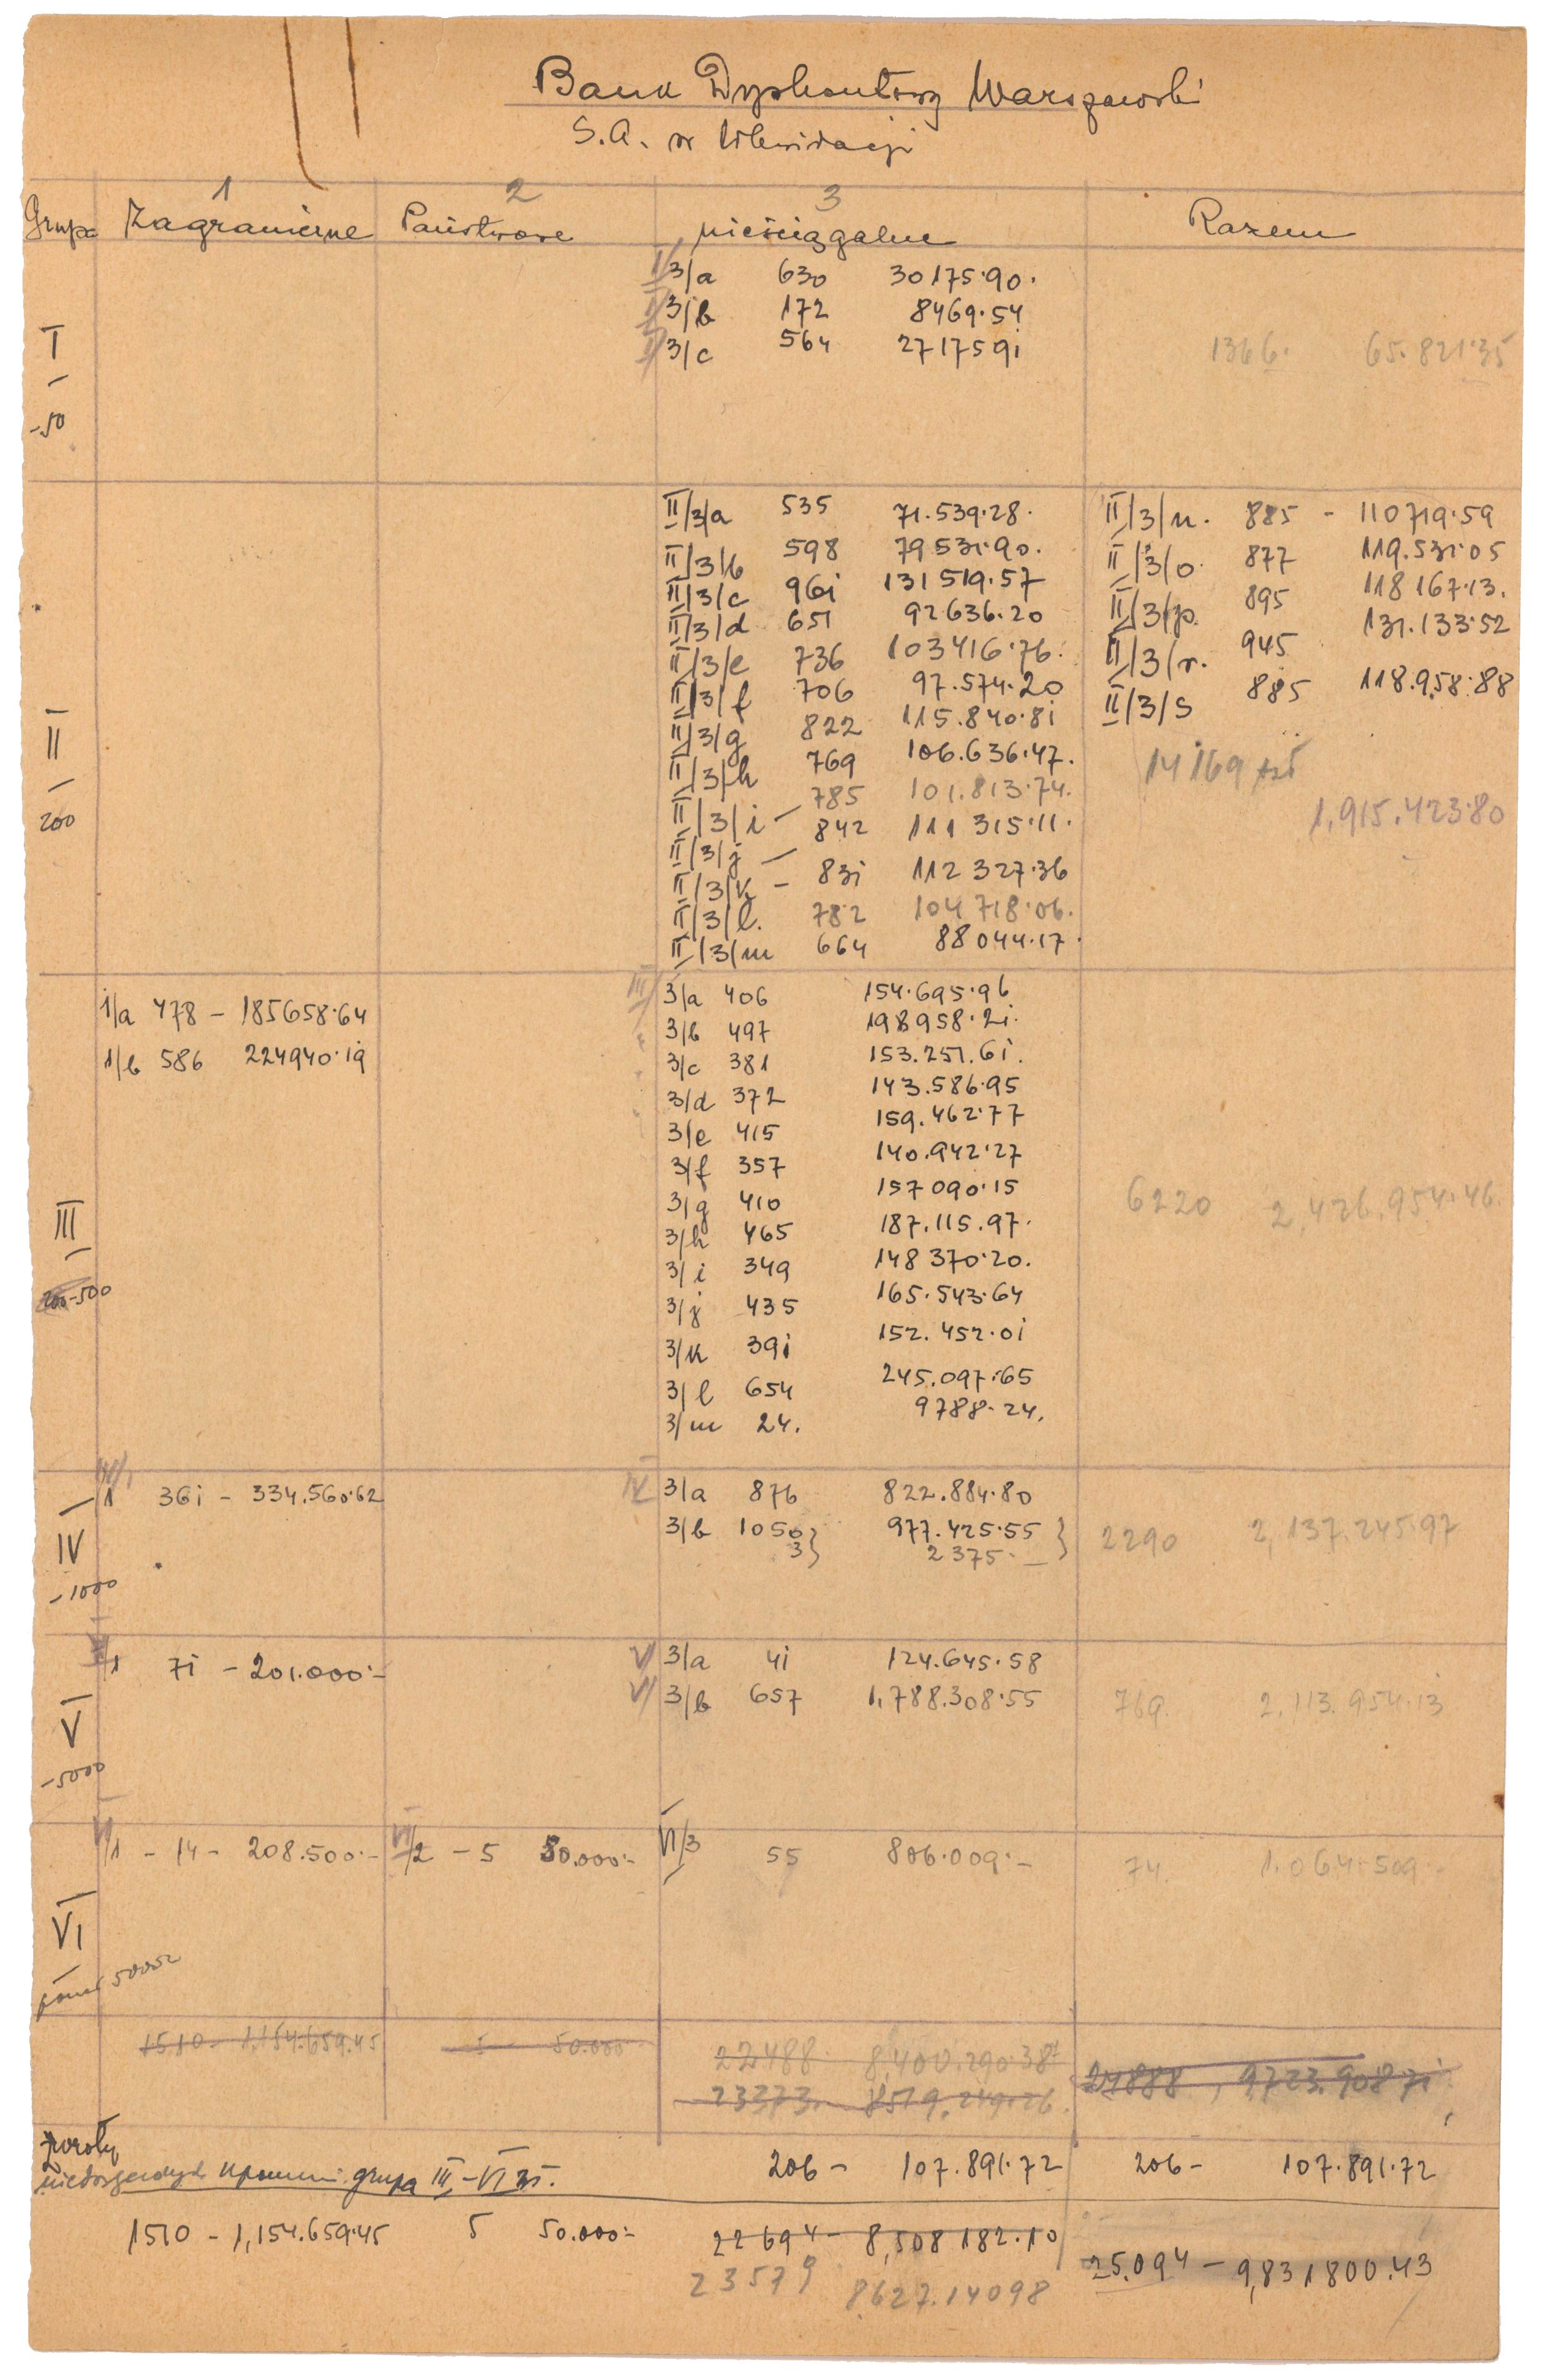 Bank Dyskontowy Warszawski
S.A. w likwidacji
1 2 3
Grupa Zagraniczne Państwowe nieściągalne Razem
I/3/a 630 30175.90.
I/3/b 172 8469.54
I/3/c 564 27175 91
I
-50
1366. 65.821.35
II/3/a 535 71.539.28.
II/3/b 598 79531.90.
II/3/c 961 131519.57
II/3/d 651 92636.20
II/3/e 736 103416.76.
II/3/f 706 97.574.20
II/3/g 822 115.840.81
II/3/h 769 106.636.47.
II/3/i - 785 101.813.74.
II/3/j - 842 111 315.11.
II/3/k - 831 112 327.36
II/3/l. 782 104 718.06.
II/3/m 664 88044.17.
II/3/n. 885 - 110719.59
II/3/o. 877 119.531.05
II/3/p. 895 118 167.13.
II/3/r. 945 131.133.52
II/3/s 885 118.958.88
14169
1,915.423.80
II
200
1/a 478 - 185658.64
1/b 586 224940.19
III 3/a 406 154.695.96
3/b 497 198958.21.
3/c 381 153.251.61.
3/d 372 143.586.95
3/e 415 159.462.77
3/f 357 140.942.27
3/g 410 157090.15
3/h 465 187.115.97.
3/i 349 148370.20.
3/j 435 165.543.64
3/k 391 152.452.01
3/l 654 245.097.65
3/m 24. 9788.24.
6220 2,426.954.46.
III
200-500
IV/1 361 - 334.560.62
IV 3/a 876 822.884.80
3/b 1050 977.425.55
3 2375.-
2290 2,137.245.97
IV
-1000
V/1 71 - 201.000.-
V/3/a 41 124.645.58
V/3/b 657 1,788.308.55
769. 2,113.954.13
V
-5000
VI/1 - 14 - 208.500.- VI/2 - 5 50.000.- VI/3 55 806.009.- 74. 1.064.509.-
VI
ponad 5000zł
1510 - 1,154.659.45 5 50.000 22488 8,400.290.38
23373. 8519.249.26 24888, 9723.908 71
zwroty
niedoszłych upomnień grupa III-VI zł.
206 - 107.891.72 206 - 107.891.72
1510 - 1,154.659.45 5 50.000.- 22694 - 8,508182.10
23579 8627.14098
25.094 - 9,831800.43